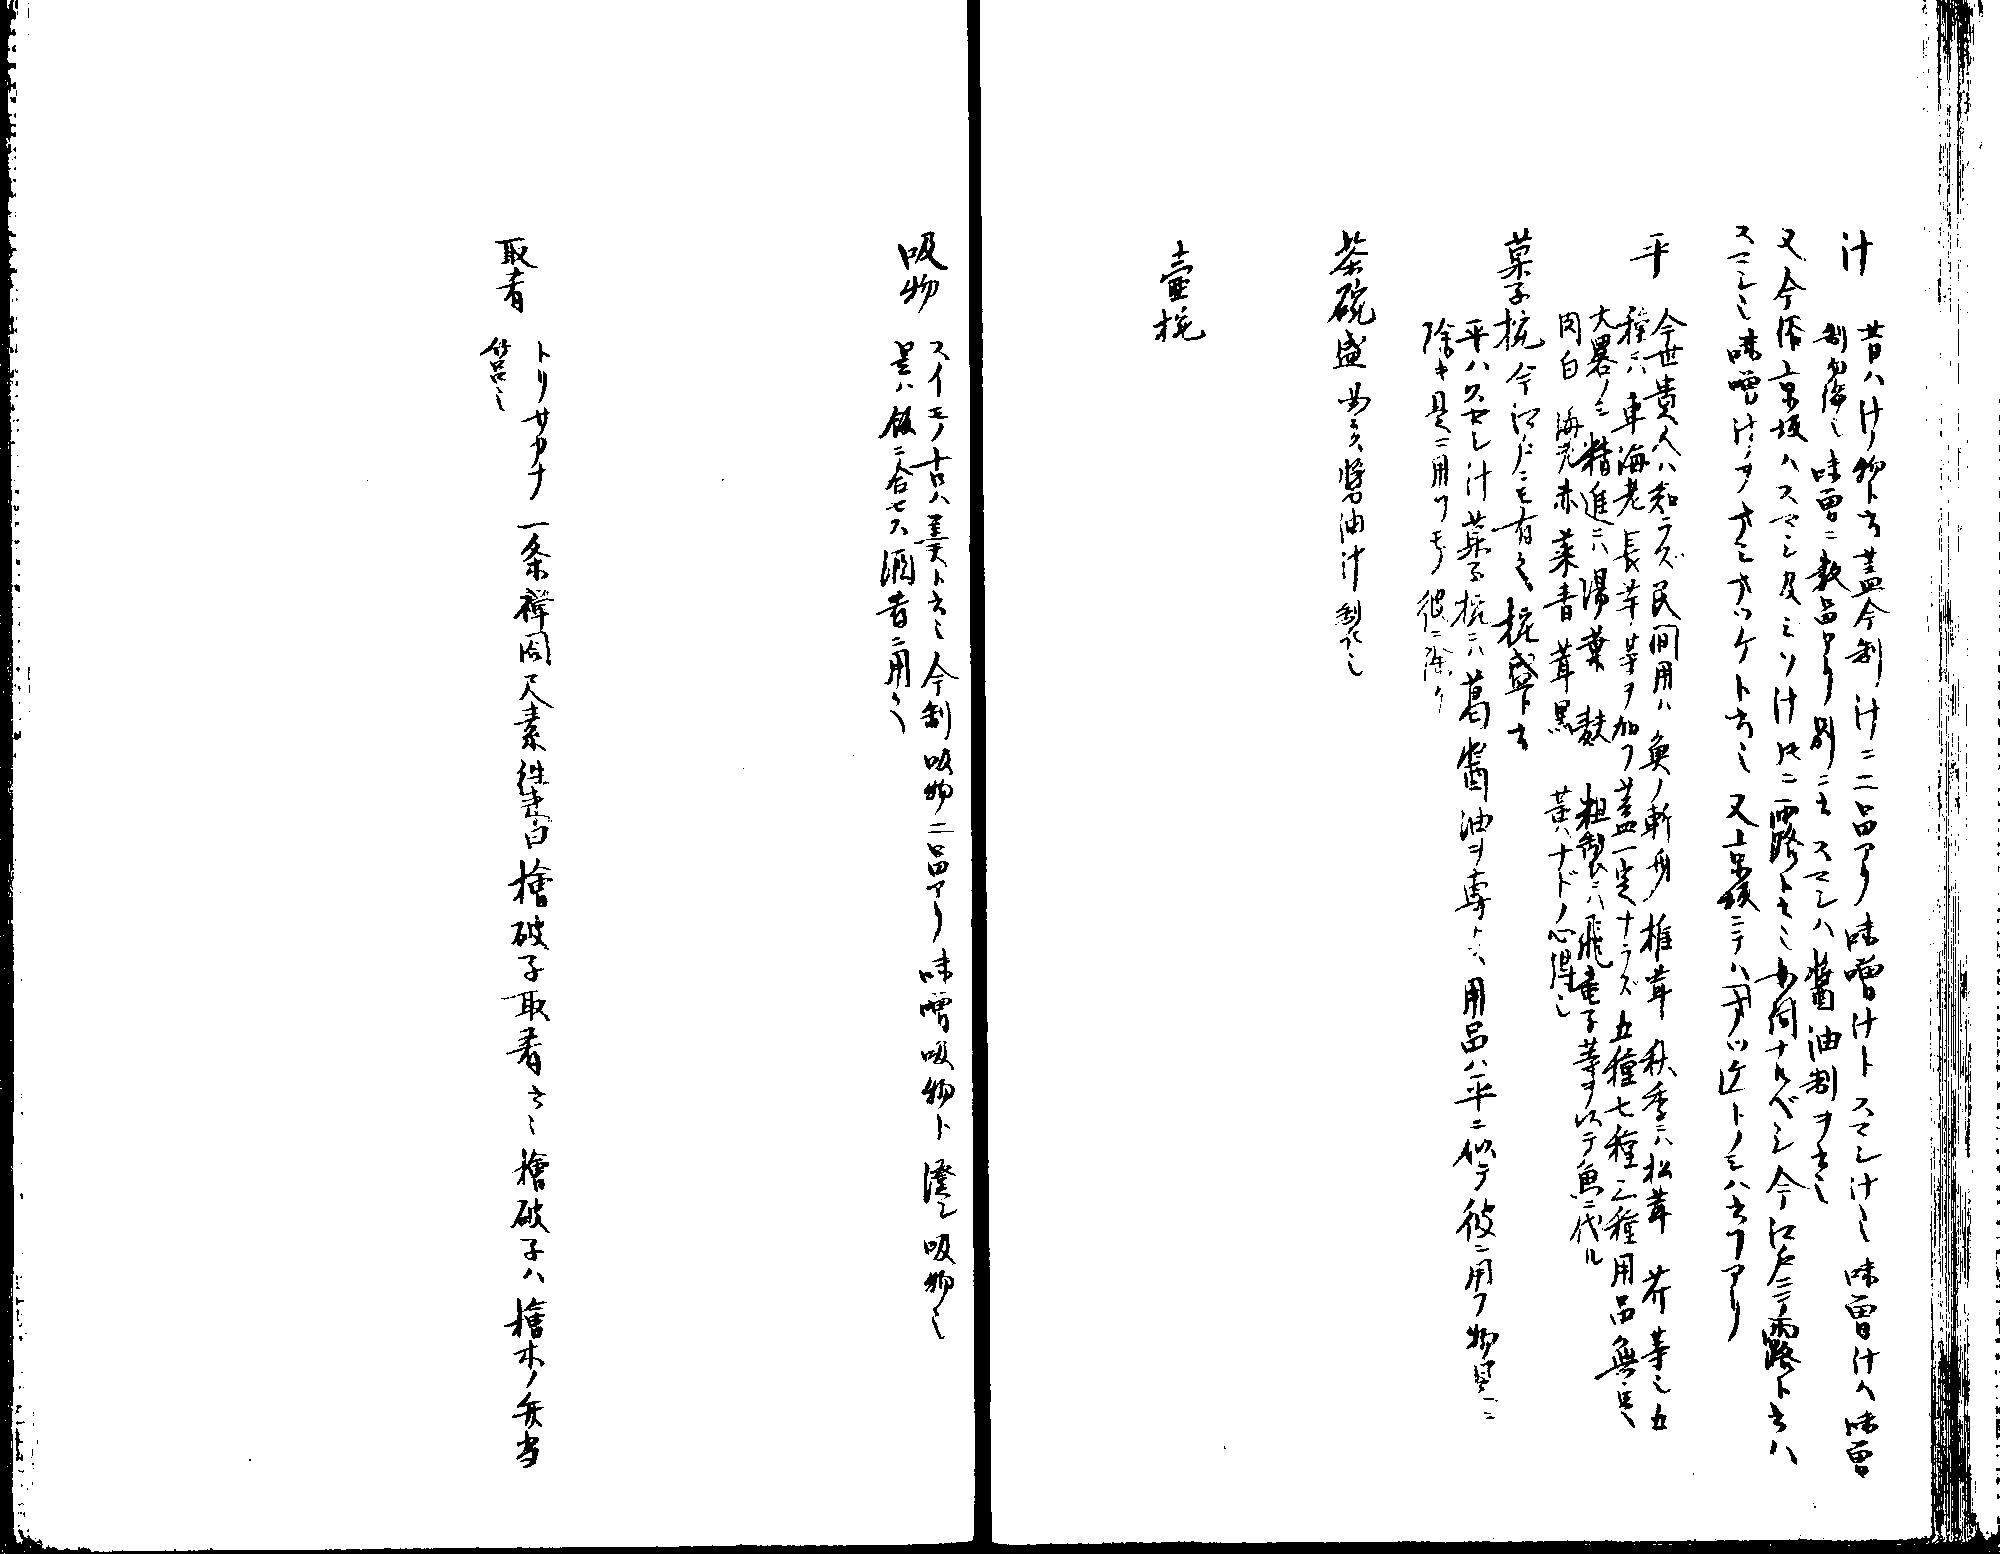 汁 昔ハ汁物ト云蓋今制汁ニ二品アリ味噌汁トスマシ汁也味曽汁ハ味曽
制勿論也味曽ニ数品アリ別ニ云スマシハ醤油制ヲ云也
又今俗京坂ハスマシ及ミソ汁トモニ露ト云也如何ナルベシ今江戸ニテ露ト云ハ
スマシ也味噌汁ヲオミオツケト云也又京坂ニテハ
平 今世貴人ハ知ラズ民間用ハ魚ノ斬身椎茸秋季ハ松茸芥等也五
種ニハ車海老長芋等ヲ加フ蓋一定ナラズ五種七種三種用品無定
大畧ノミ精進ニハ湯葉麩粗製ニハ飛竜子等ヲ以テ魚ニ代ル
肉白海老赤菜青茸黒黄ナドノ心得也
菓子椀 今江戸ニモ有之椀盛ト云
平ハウスセシ汁菓子椀ニハ葛醤油ヲ専トス用品ハ平ニ似テ彼ニ用フ物是ニ
除キ是ニ用フモノ彼ニ除ク
茶碗盛 醤油汁製也
壷椀
吸物 スイモノ古ハ羹ト云也今制吸物二品アリ味噌吸物ト澄シ吸物也
是ハ飯ニ合セス酒肴ニ用之
取肴 トリサカナ 一条禅閤尺素往来曰檜破子取肴云々檜破子ハ檜木ノ弁当
筥也